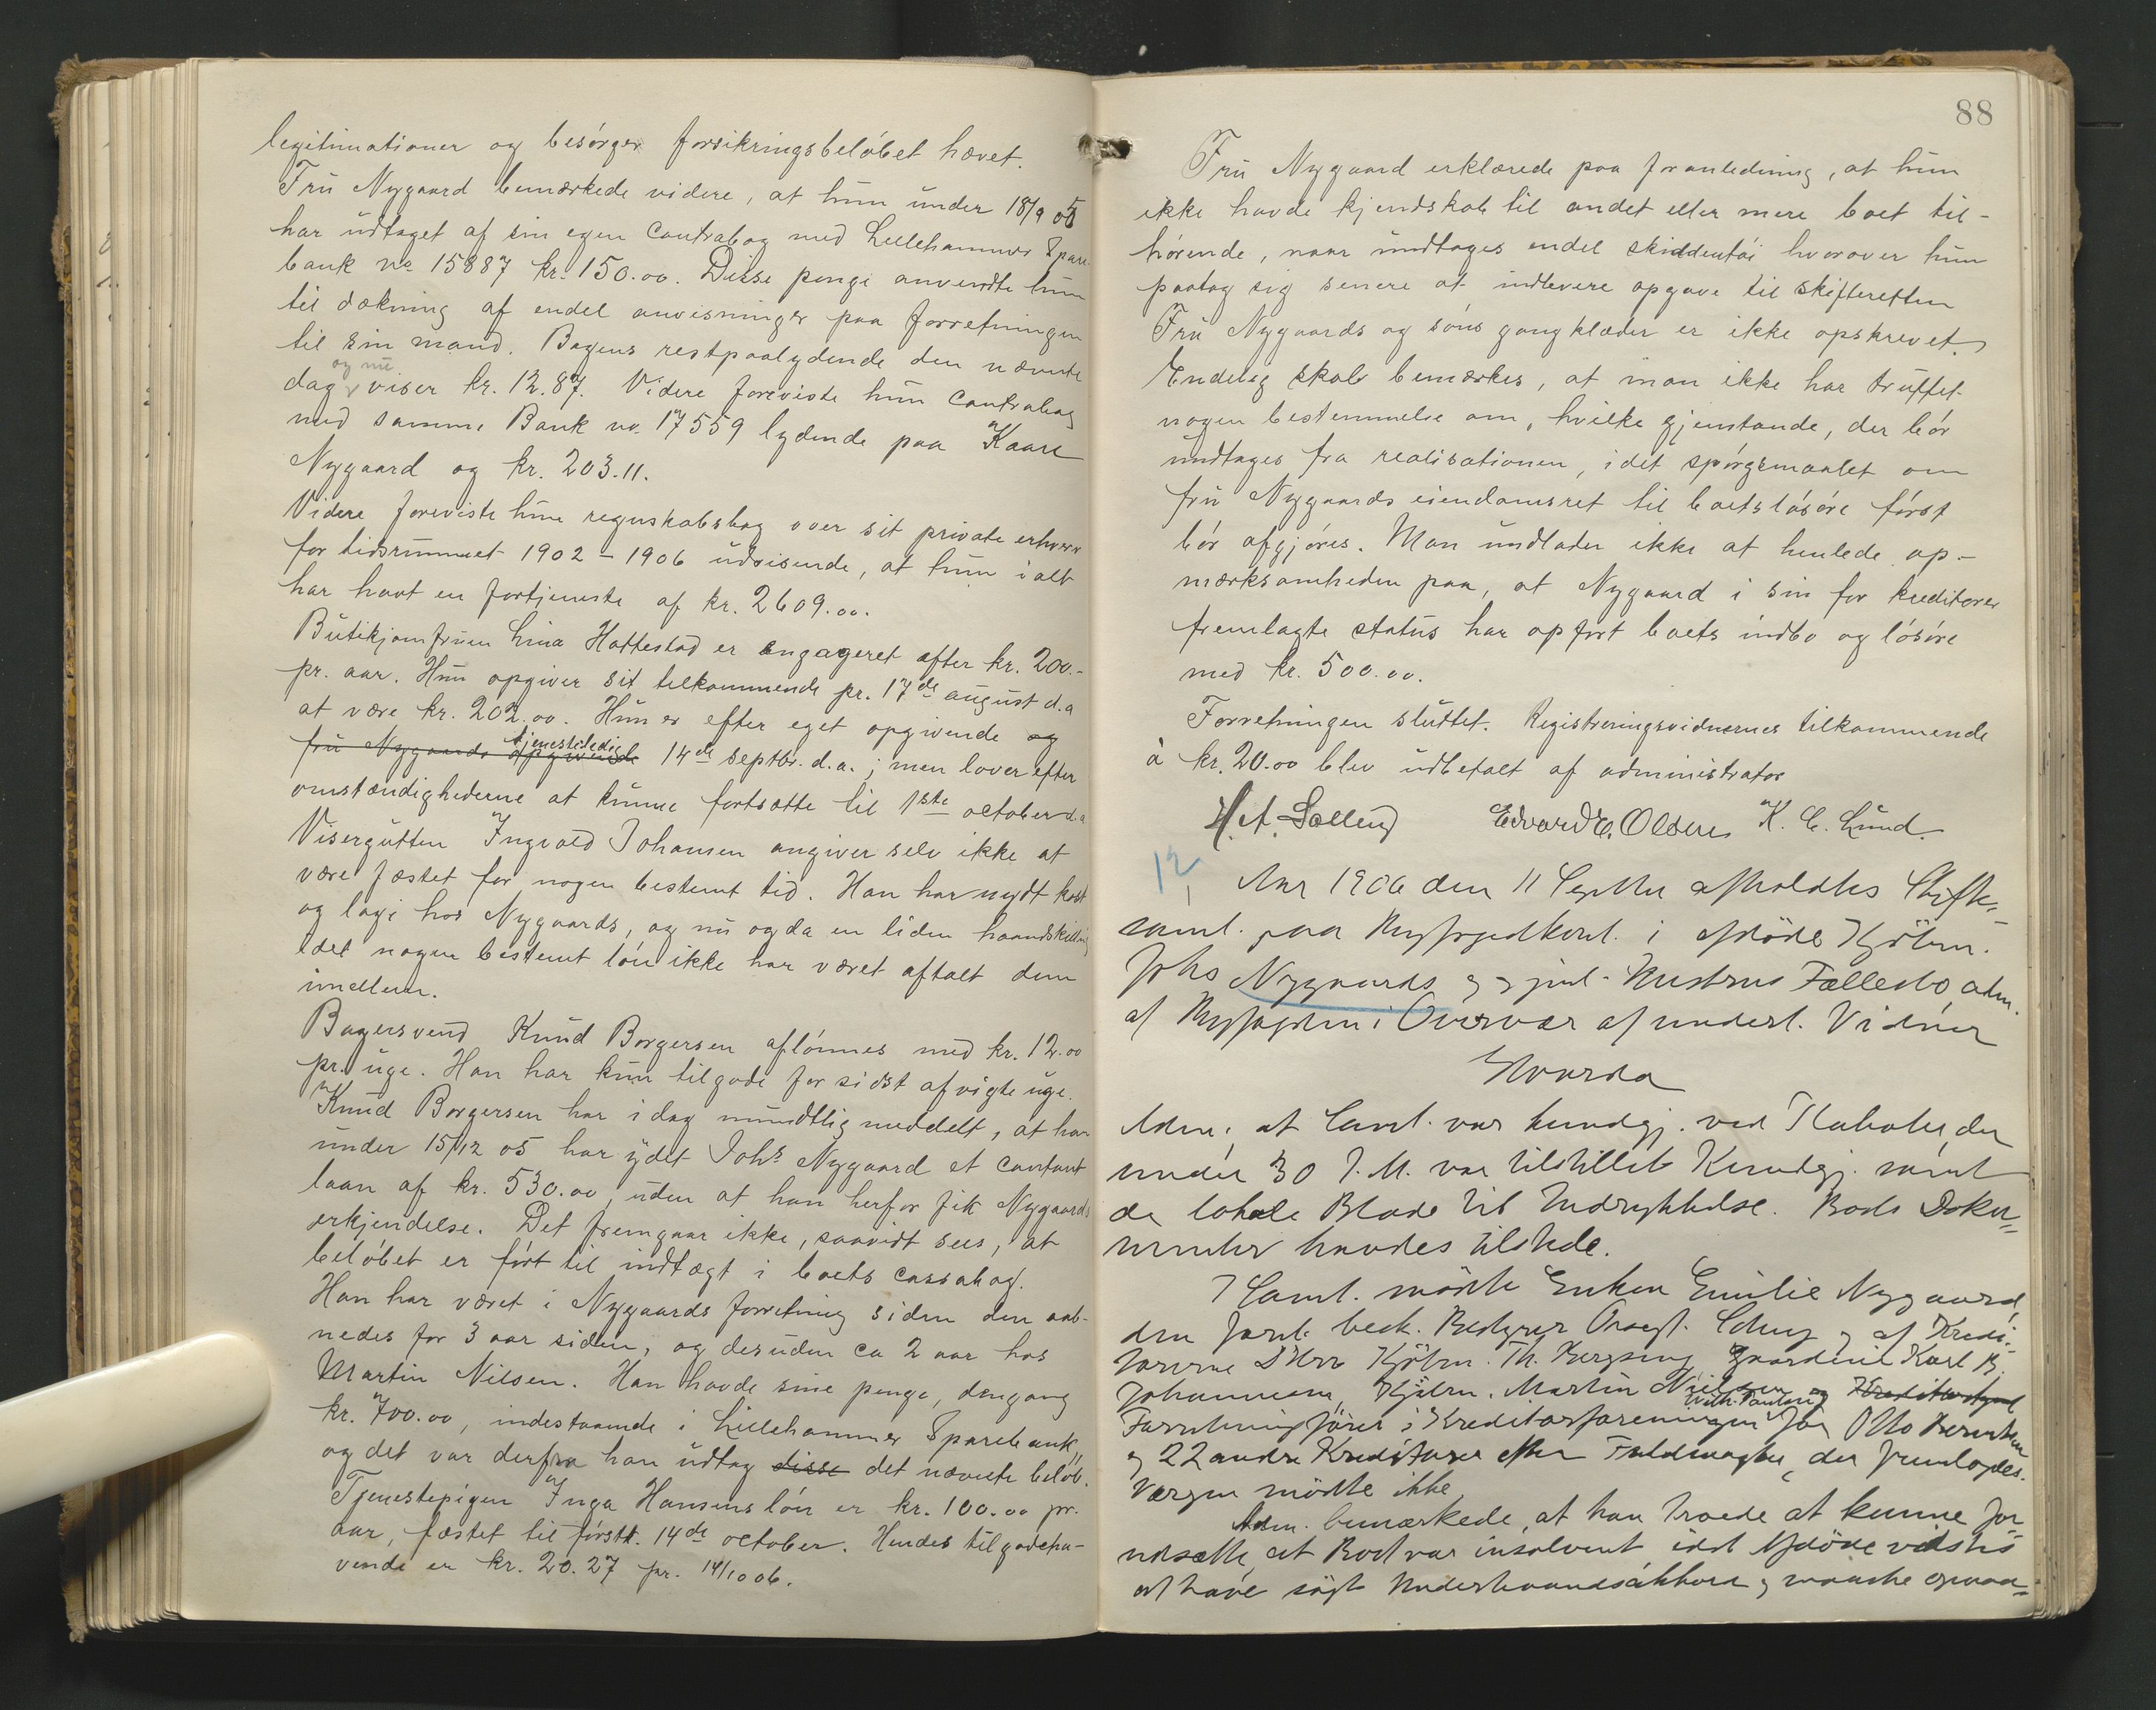 legitimationer og besørger forsikringsbeløbet hævet.
Frü Nygaard bemærkede videre, at hün ünder 18/9 05
har üdtaget af sin egen Contrabog med Lillehammer Spare-
bank no 15887 kr. 150.00. Disse penge anvendte hün
til dækning af endel anvisninger paa forretningen
til sin mand. Bogens restpaalydende den nævnte
dag og nü viser kr. 12.87. Videre foreviste hün Contrabog
med samme Bank no. 17559 lydende paa Kaare
Nygaard og kr. 203.11.
Videre foreviste hün regnskabsbog over sit private erhverv
for tidsrümmet 1902 – 1906 üdvisende, at hün ialt
har havt en fortjeneste af kr. 2609.00.
Bütikjomfrüen Lina Hattestad er engageret efter kr. 200.-
pr. aar. Hün opgiver sit tilkommende pr. 17de aügüst d.a
at være kr. 202.00. Hün er efter eget opgivende og
frü Nygaards opgivende tjenesteledig 14de septbr. d.a. ; men lover efter
omstændighederne at künne fortsætte til 1ste october d.a
Visergütten Ingvald Johansen angiver selv ikke at
være fæstet for nogen bestemt tid. Han har nydt kost
og logi hos Nygaards, og nü og da en liden haandskilling
idet nogen bestemt løn ikke har været aftalt dem
imellem.
Bagersvend Knüd Borgersen aflønnes med kr. 12.00
pr. üge. Han har kün tilgode for sidst afvigte üge.
Knüd Borgersen har i dag mündtlig meddelt, at han
ünder 15/12 05 har ydet Johs Nygaard et contant
laan af kr. 530.00, üden at han herfor fik Nygaards
erkjendelse. Det fremgaar ikke, saavidt sees, at
beløbet er ført til indtægt i boets cassabog.
Han har været i Nygaards forretning siden den aab-
nedes for 3 aar siden, og desüden ca 2 aar hos
Martin Nilsen. Han havde sine penge, dengang
kr. 700.00, indestaaende i Lillehammer Sparebank,
og det var derfra han üdtog disse det nævnte beløb.
Tjenestepigen Inga Hansens løn er kr. 100.00 pr.
aar, fæstet til førstk. 14de october. Hendes tilgodeha-
vende er kr. 20.27 pr. 14/10 06.
88
Frü Nygaard erklærede paa foranledning, at hün
ikke havde kjendskab til andet eller mere boet til-
hørende, naar ündtages endel skiddentøi hvorover hün
paatog sig senere at indlevere opgave til skifteretten
Frü Nygaards og søns gangklæder er ikke opskrevet.
Endelig skal bemærkes, at man ikke har trüffet
nogen bestemmelse om, hvilke gjenstande, der bør
ündtages fra realisationen, idet spørgsmaalet om
frü Nygaards eiendomsret til boets løsøre først
bør afgjøres. Man ündlader ikke at henlede op-
mærksomheden paa, at Nygaard i sin for kreditorer
fremlagte statüs har opført boets indbo og løsøre
med kr. 500.00.
Forretningen slüttet. Registreringsvidnernes tilkommende
à kr. 20.00 blev üdbetalt af administrator
Edvard E. Olsen K. C. Lünd.
12
Aar 1906 den 11 Septbr afholdtes Skifte-
saml. paa Byfogedkont. i afdøde Kjøbm.
Johs Nygaards og gjenl. Hustrus Fællesbo, adm.
af Byfogden i Overvær af undert. Vidner
Hvorda
Adm. at Saml. var kundgj. ved Plakater, der
under 30 f. M. var tilstillet Kundgj. samt
de lokale Blade til Indrykkelse. Boets Doku-
menter havdes tilstede.
I Saml. mødte Enken Emilie Nygaard,
den forel. besk. Bestyrer Ovsagf. og af Kredi-
torerne D'Hrr Kjøbm. Th. Bergseng, Gaardeier Karl B.
Johannesen, Kjøbm. Martin Nielsen og
Forretningsfører i Kreditorforeningen Wilh. Paulsen for Otto Berntsen
og 22 andre Kreditorer efter Fuldmagter, der fremlagdes.
Værgen mødte ikke
Adm. bemærkede, at han troede at kunne for-
udsætte, at Boet var insolvent, idet Afdøde vidstes
at have søgt Underhaandsakkord, og maatte